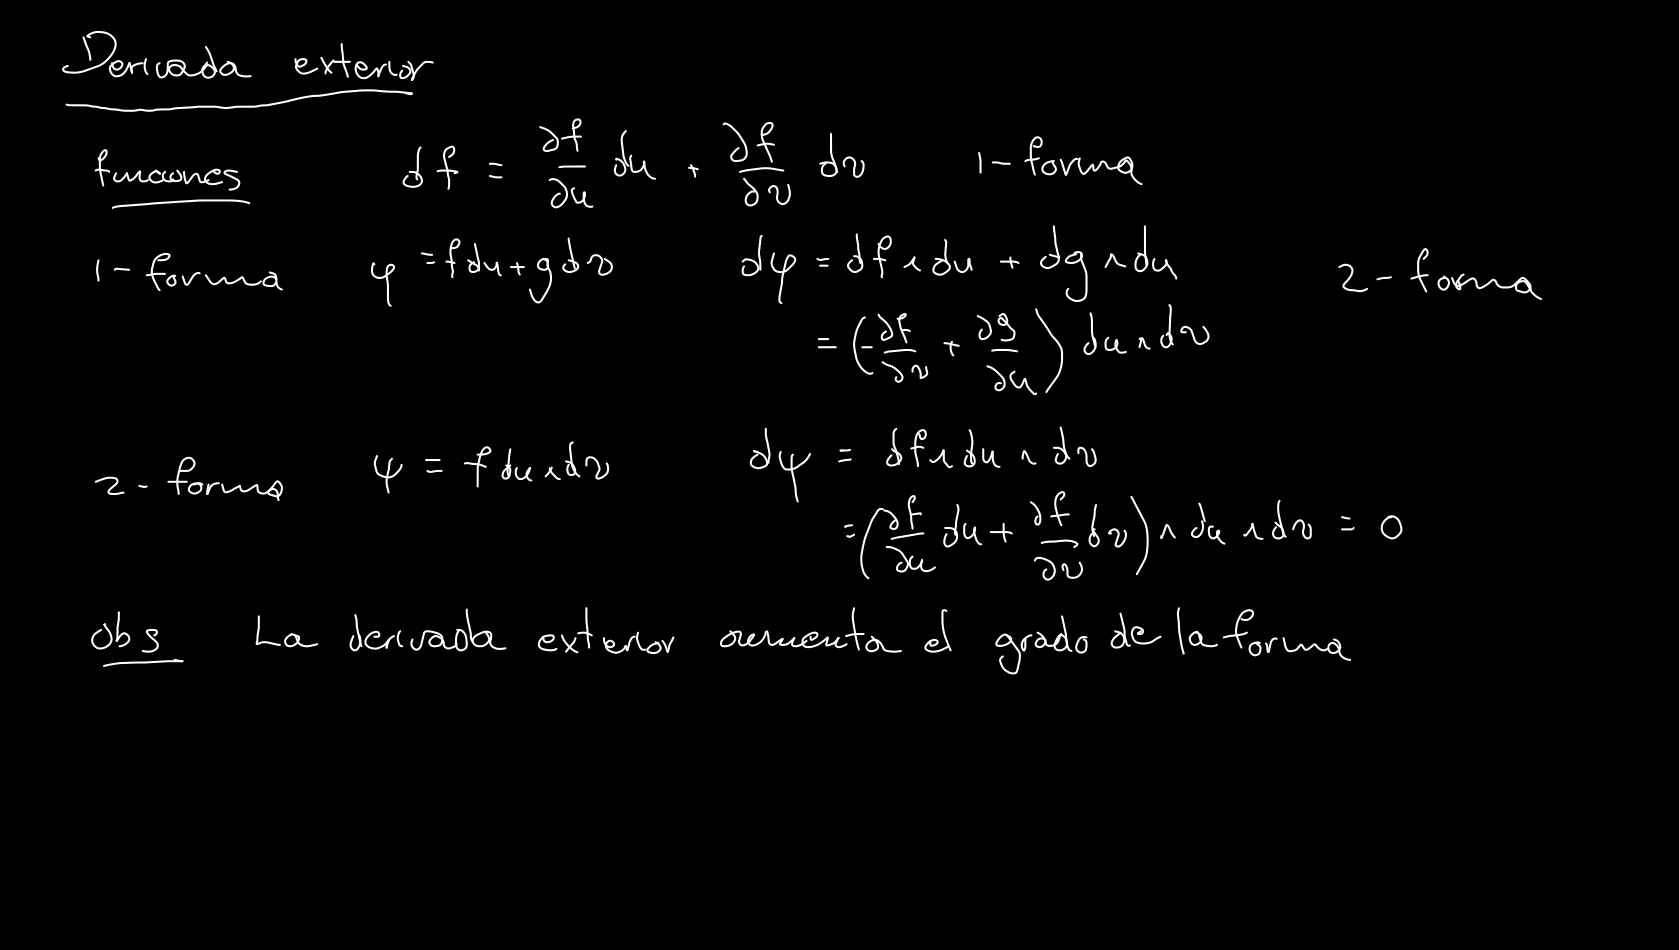 Derivada exterior
funciones df = ∂f/∂u du + ∂f/∂v dv 1-forma
1-forma φ = f du + g dv dφ = df ∧ du + dg ∧ du 2-forma
= (-∂f/∂v + ∂g/∂u) du ∧ dv
2-forma ψ = f du ∧ dv dψ = df ∧ du ∧ dv
= (∂f/∂u du + ∂f/∂v dv) ∧ du ∧ dv = 0
obs La derivada exterior aumenta el grado de la forma